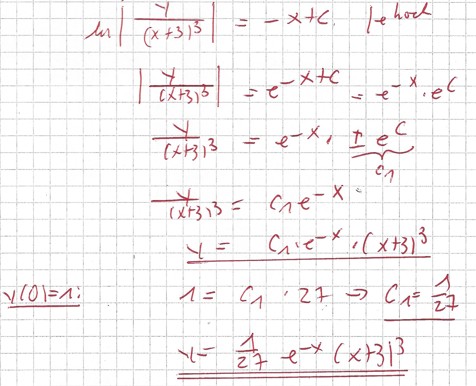 ln|y/(x+3)³| = -x+c |e hoch
|y/(x+3)³| = e^(-x+c) = e^(-x) · e^c
y/(x+3)³ = e^(-x) · ± e^c
c₁
y/(x+3)³ = c₁e^(-x)
y = c₁·e^(-x)·(x+3)³
y(0)=1: 1 = c₁ · 27 ⇒ c₁ = 1/27
y = 1/27 e^(-x) (x+3)³